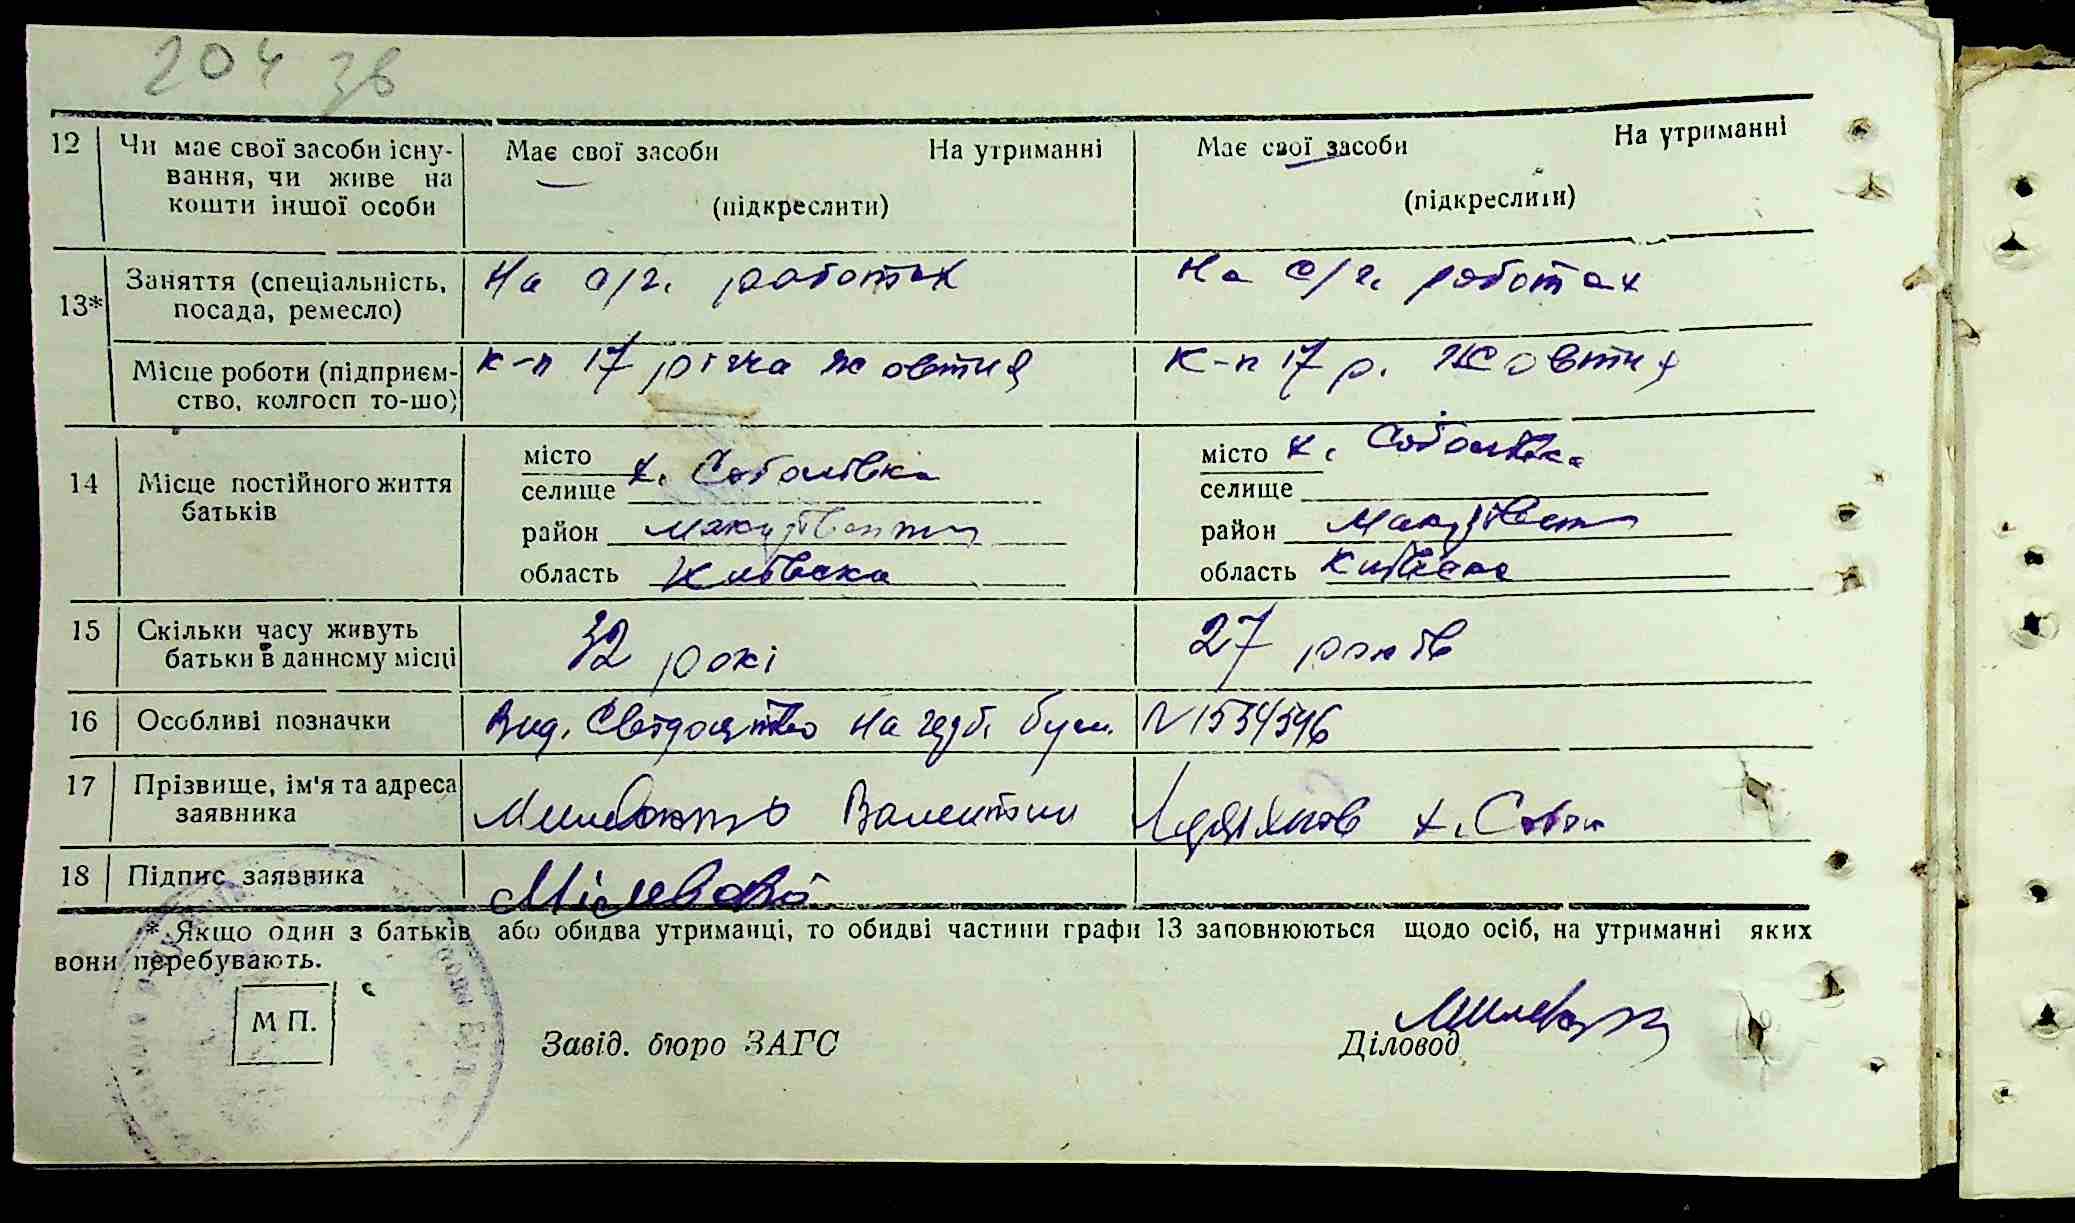 204 зв
12 Чи має свої засоби існу- Має свої засоби На утриманні Має свої засоби На утриманні
вання, чи живе на
кошти іншої особи (підкреслити) (підкреслити)
13* Заняття (спеціальність, На с/г. роботах На с/г. роботах
посада, ремесло)
Місце роботи (підприєм- к-п 17 річча жовтня к-п 17 р. Жовтня
ство, колгосп то-що)
14 Місце постійного життя місто х. Соболівка місто х. Соболівка
батьків селище селище
район район
область Київська область Київська
15 Скільки часу живуть 32 рокі 27 років
батьки в данному місці
16 Особливі позначки Вид. Свідоцтво на гербі. бум. N 1534546
17 Прізвище, ім'я та адреса Валентин х. Собол
заявника
18 Підпис заявника
* Якщо один з батьків або обидва утриманці, то обидві частини графи 13 заповнюються щодо осіб, на утриманні яких
вони перебувають.
М П.
Завід. бюро ЗАГС Діловод